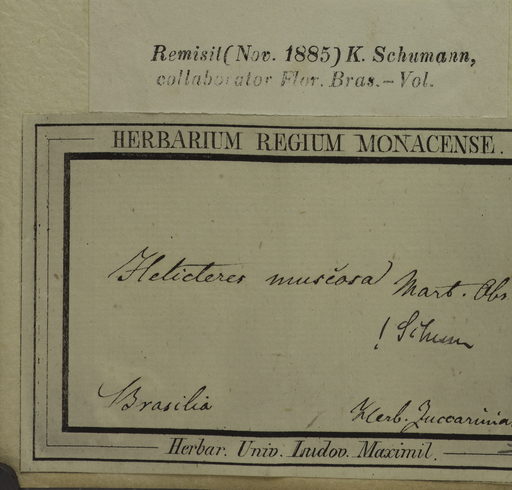 Remisit (Nov. 1885) K. Schumann,
collaborator Flor. Bras. – Vol.
HERBARIUM REGIUM MONACENSE.
Helicteres muscosa Mart. Obs
! Schum
Brasilia
Herb. Zuccarinia
Herbar. Univ. Ludov. Maximil.